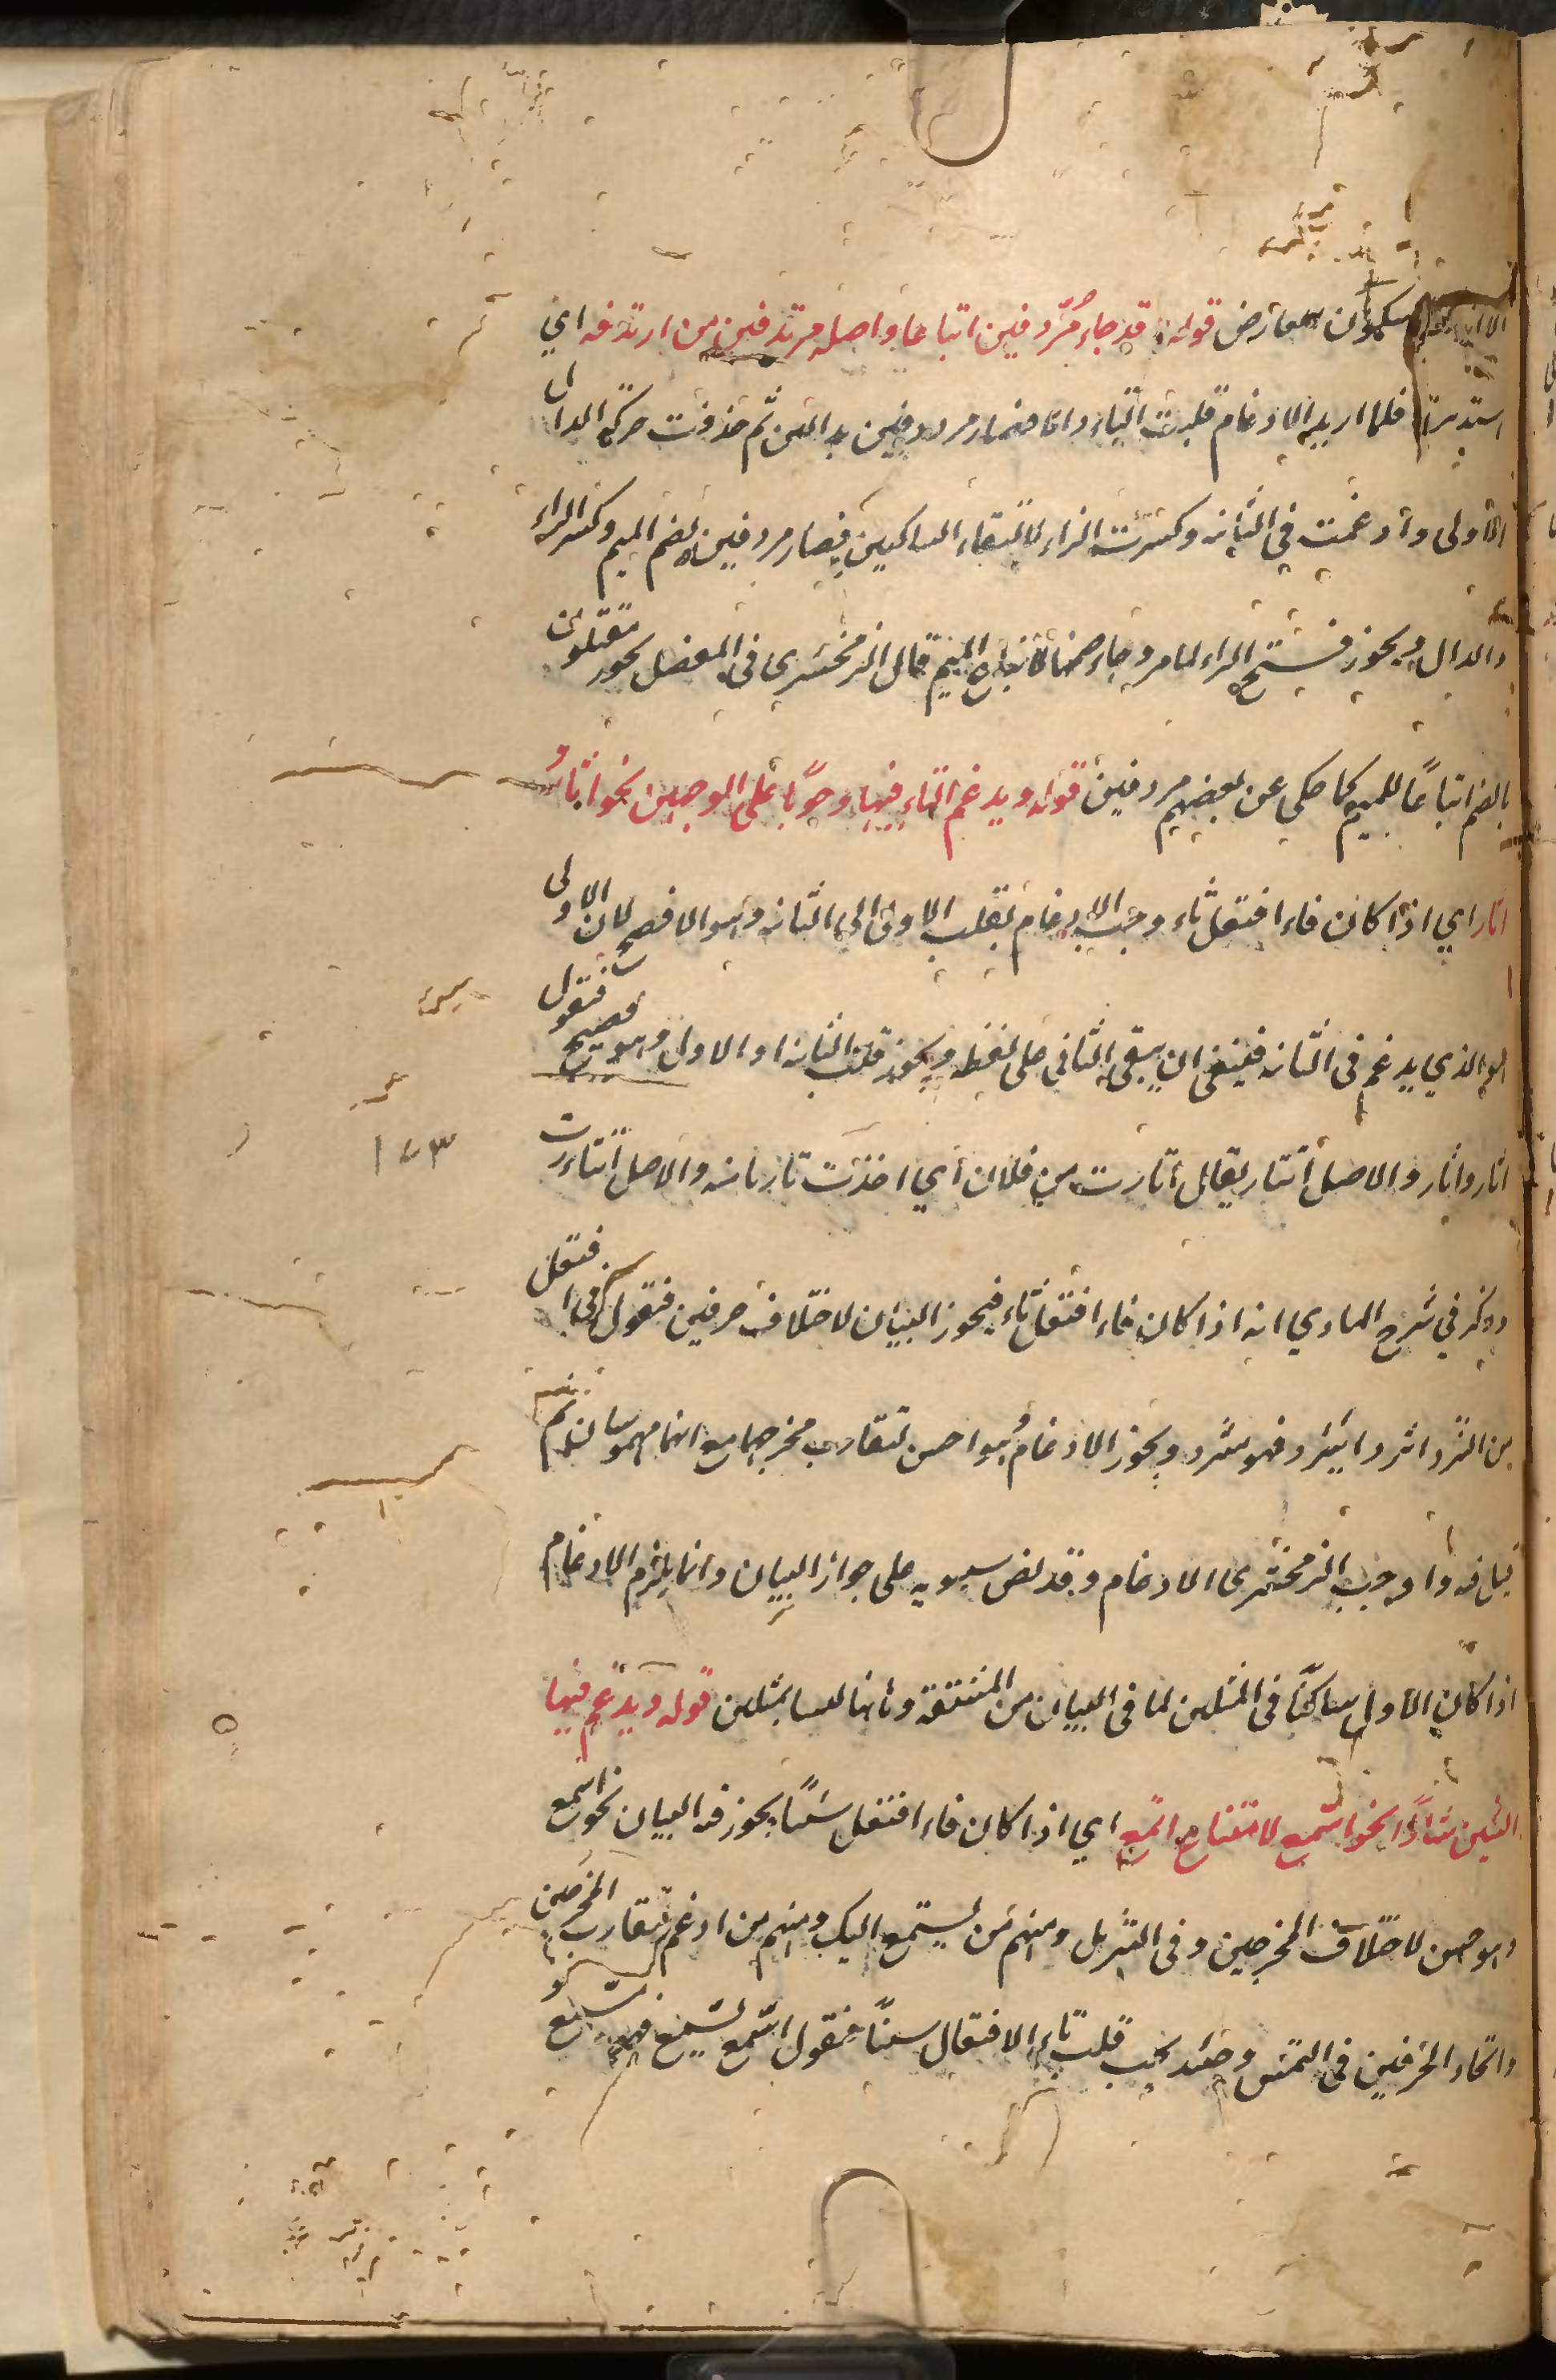 سكون عارض قوله وقد جاء مُرُدفين اتباعا واصله مرتدفين من ارتدفه اي
استدبره فلما اريد الادغام قلبت التاء دالا فصار مرددفين بدالين ثم حذفت حركة الدال
الاولى وادغمت في الثانية وكسرت الراء لالتقاء الساكنين فصار مردفين بضم الميم وكسر الراء
والدال ويجوز فتح الراء لما مر وجاء ضمها لاتباع الميم قال الزمخشري في المفصل نحو مقتلون
بالضم اتباعًا للميم كما حكي عن بعضهم مردفين قوله ويدغم الثاء فيها وجوبًا على الوجهين نحو اثار و
اتار اي اذا كان فاء افتعل ثاء وجب الادغام بقلب الاولى الى الثانية وهو الافصح لان الاولى
هو الذي يدغم في الثانية فينبغي ان يبقى الثاني على لفظه ويجوز قلب الثانية الى الاولى وهو فصيح فتقول
اتار واثار والاصل اثتار يقال اثارت من فلان أي اخذت ثاري منه والاصل اثتارت
وذكر في شرح الهادي انه اذا كان فاء افتعل ثاء فيجوز البيان لاختلاف حرفين فتقول في افتعل
من الثرد اثترد يثترد فهو مثترد ويجوز الادغام وهو احسن لتقارب مخرجهما مع انهما مهموسان ثم
قيل فيه واوجب الزمخشري الادغام وقد نص سيبويه على جواز البيان وانما يلزم الادغام
اذا كان الاول ساكنًا في المثلين لما في البيان من المشقة وهنا ليسا بمثلين قوله ويدغم فيها
السين شاذًا نحو اسمع لامتناع اتمع اي اذا كان فاء افتعل سينًا يجوز فيه البيان نحو استمع
وهو حسن لاختلاف المخرجين وفي التنزيل ومنهم من يستمع اليك ومنهم من ادغم لتقارب المخرجين
واتحاد الحرفين في الهمس وحينئذ يجب قلب تاء الافتعال سينًا فتقول اسّمع يسّمع فهو مسّمع
١٧٣